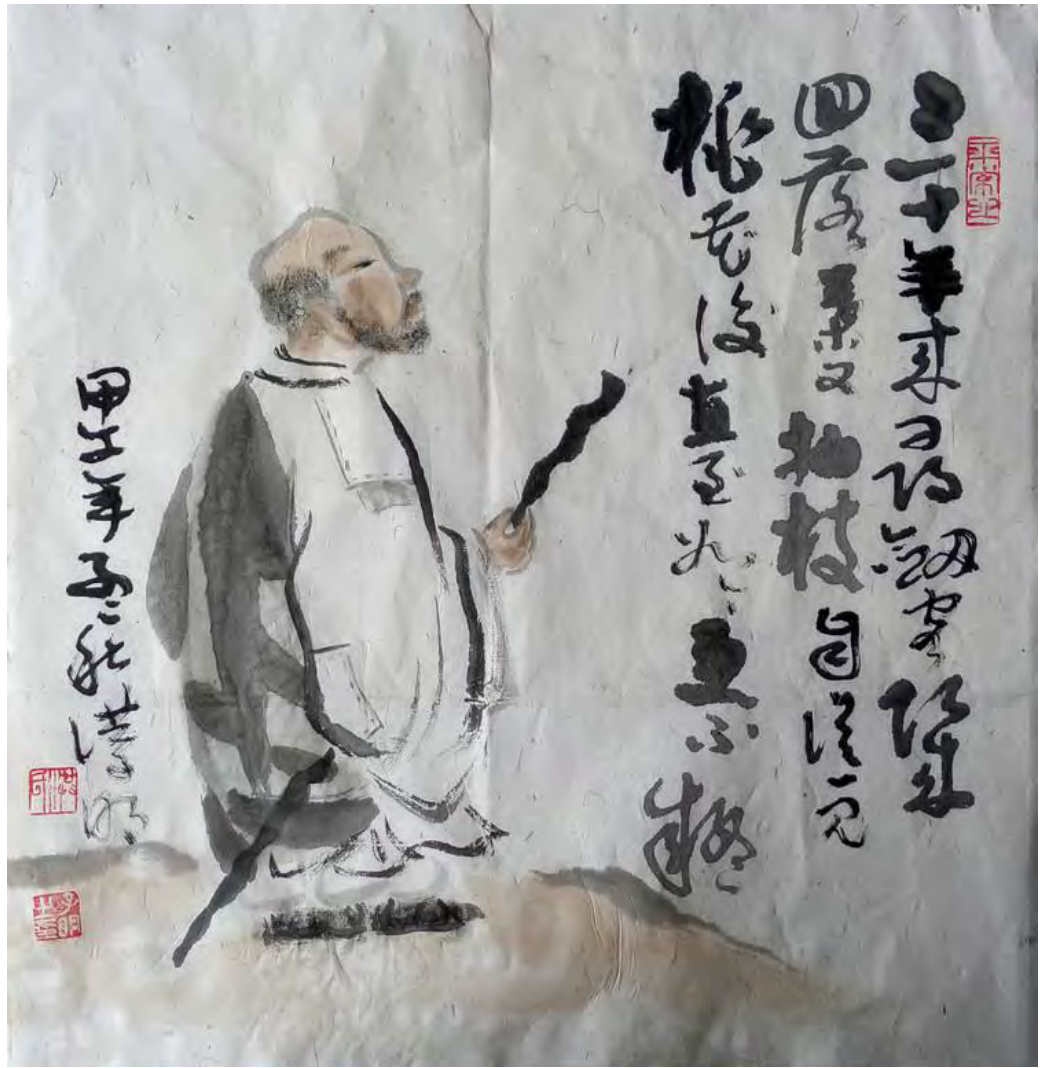 三十年来尋劍客
回落葉又抽枝自從一見
桃花後直至如今更不疑
甲午年孟秋洪子明